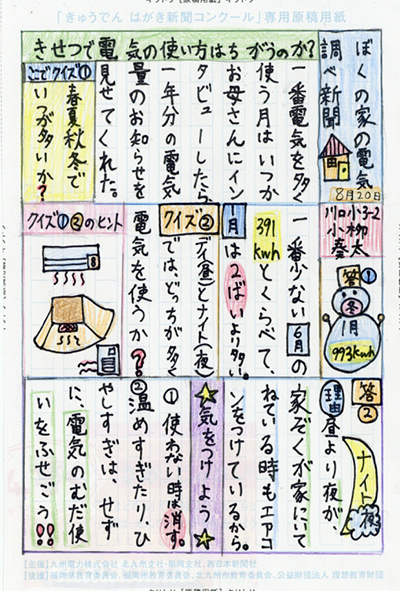 「きゅうでん はがき新聞コンクール」専用原稿用紙
きせつで電気の使い方はちがうのか?
ぼくの家の電気
調べ新聞
8月20日
川口小
3-2
小柳
奏太
一番電気を多く
使う月はいつか
お母さんにイン
タビューしたら
一年分の電気
量のお知らせを
見せてくれた。
ここでクイズ①
春夏秋冬で
いつが多いか?
答①
冬
1月
993kwh
一番少ない6月の
391kwhとくらべて、
1月は2ばいより多い。
クイズ②デイ(昼)とナイト(夜)
では、どっちが多く
電気を使うか??
クイズ①②のヒント
答②
ナイト(夜)
理由 昼より夜が、
家ぞくが家にいて
ねている時もエアコ
ンをつけているから。
★気をつけよう★
①使わない時は消す。
②温めすぎたり、ひ
やしすぎは、せず
に、電気のむだ使
いをふせごう!!
【主催】九州電力株式会社 北九州支社・福岡支社、西日本新聞社
【後援】福岡県教育委員会、福岡市教育委員会、北九州市教育委員会、公益財団法人 理想教育財団